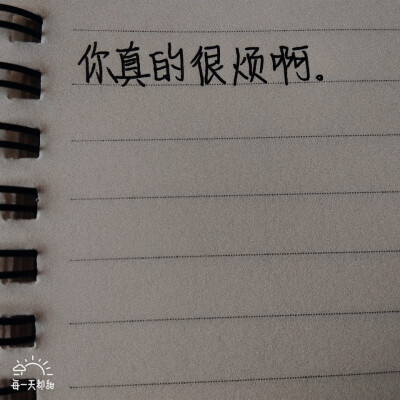 你真的很烦啊。
每一天都甜